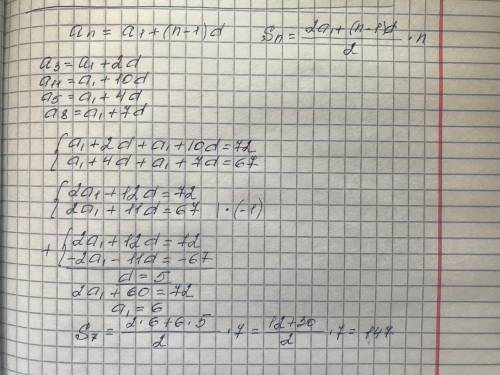 aₙ = a₁ + (n-1)d    Sₙ = (2a₁ + (n-1)d)/2 · n
a₃ = a₁ + 2d
a₁₁ = a₁ + 10d
a₅ = a₁ + 4d
a₈ = a₁ + 7d
{ a₁ + 2d + a₁ + 10d = 72
a₁ + 4d + a₁ + 7d = 67
{ 2a₁ + 12d = 72
2a₁ + 11d = 67 | · (-1)
+ { 2a₁ + 12d = 72
-2a₁ - 11d = -67
d = 5
2a₁ + 60 = 72
a₁ = 6
S₇ = (2·6 + 6·5)/2 · 7 = (12+30)/2 · 7 = 147